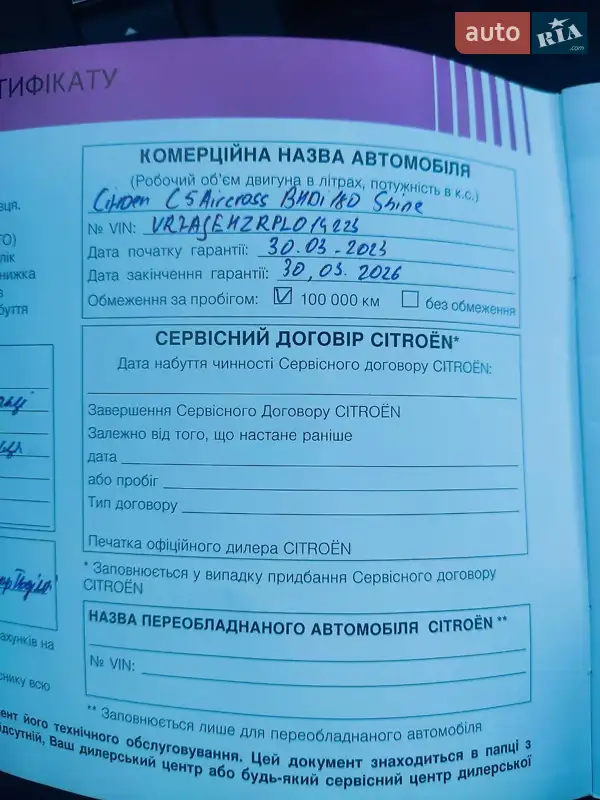 auto RIA .com
ТИФІКАТУ
КОМЕРЦІЙНА НАЗВА АВТОМОБІЛЯ
(Робочий об'єм двигуна в літрах, потужність в к.с.)
Citroen C5 Aircross BHDi 180 Shine
№ VIN:
Дата початку гарантії: 30.03.2023
Дата закінчення гарантії: 30.03.2026
Обмеження за пробігом: 100 000 км без обмеження
СЕРВІСНИЙ ДОГОВІР CITROËN*
Дата набуття чинності Сервісного договору CITROËN:
Завершення Сервісного Договору CITROËN
Залежно від того, що настане раніше
дата
або пробіг
Тип договору
Печатка офіційного дилера CITROËN
* Заповнюється у випадку придбання Сервісного договору
CITROËN
НАЗВА ПЕРЕОБЛАДНАНОГО АВТОМОБІЛЯ CITROËN **
№ VIN:
** Заповнюється лише для переобладнаного автомобіля
ент його технічного обслуговування. Цей документ знаходиться в папці з
ідсутній, Ваш дилерський центр або будь-який сервісний центр дилерської